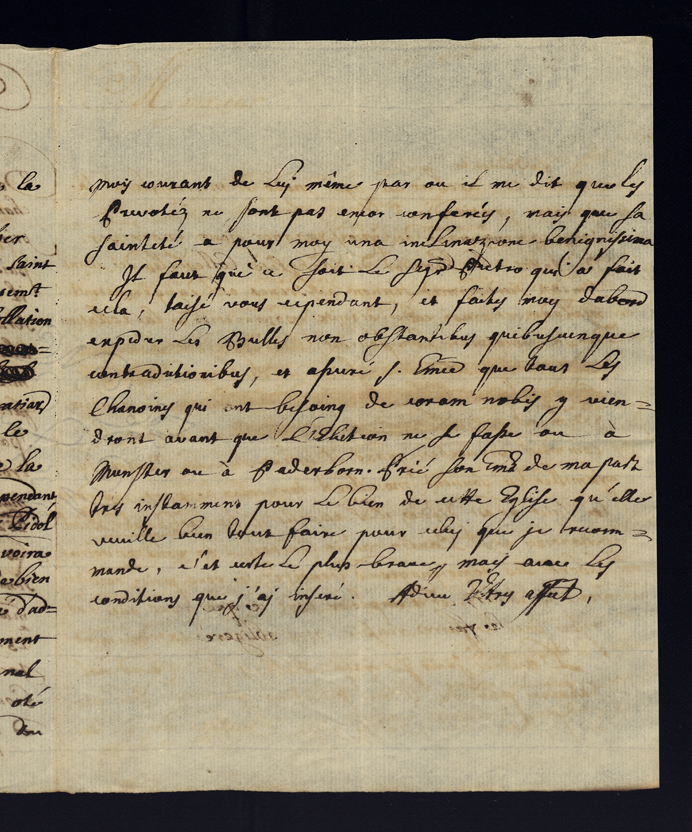 la
mois courant de luj même par ou il me dit que les
Prevotéz ne sont pas encor conferés, mais que sa
sainteté a pour moy una inclinazione benignissima
saint
Il faut que ce soit le Sigr Pietro qui aj fait
cela, taisé vous cependant, et faites moy dabord
expedier les Bulles non obstantibus quibuscunque
contradictionibus, et assuré s. Emce que tout les
Chanoines qui ont besoing de coram nobis y vien=
le
dront avant que l'Election ne se fasse ou à
la
Munster ou à Paderborn. Prié son Emce de ma part
pendant
tres instamment pour le bien de cette Eglise qu'elle
veuille bien tout faire pour celuj que je recom=
voira
mande, c'et certe le plus brave, mais avec les
bien
conditions que j'aj inseré. Adieu
ment
nal
oté
du